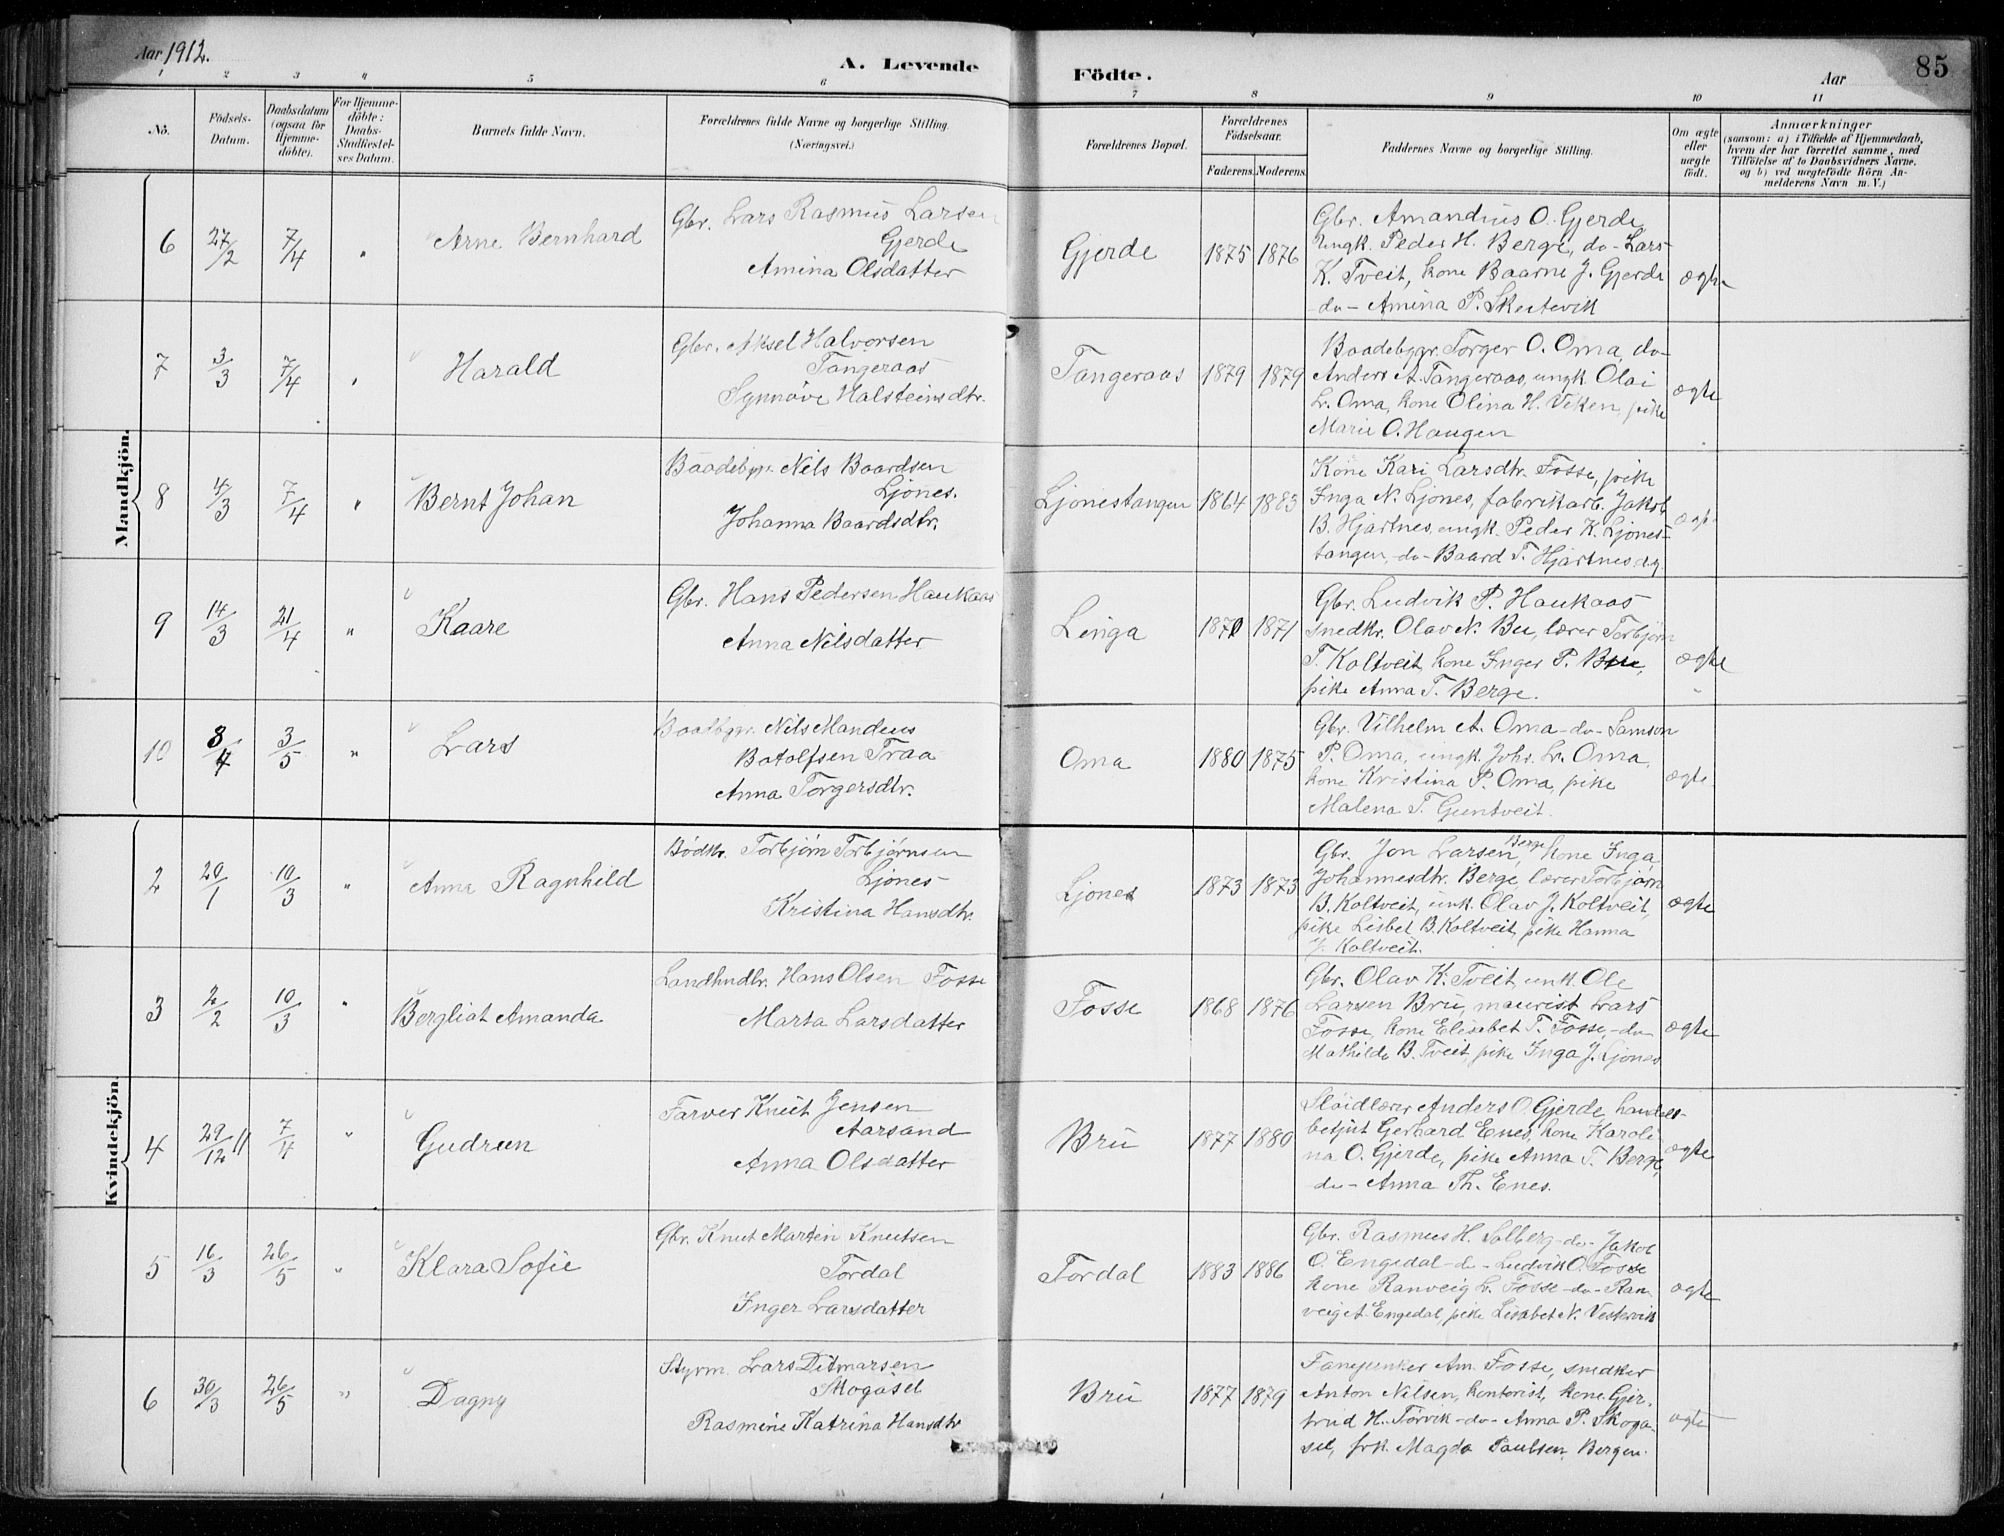 Aar 1912.
A. Levende Födte.
Aar
85
1 2 3 4 5 6 7 8 9 10 11
No.
Födsels-Datum.
Daabsdatum (ogsaa for Hjemme-döbte).
For Hjemme-döbte: Daabs-Stadfæstel-ses Datum.
Barnets fulde Navn.
Forældrenes fulde Navne og borgerlige Stilling. (Næringsvei.)
Forældrenes Bopæl.
Forældrenes Födselsaar.
Faderens. Moderens.
Faddernes Navne og borgerlige Stilling.
Om ægte eller uægte födt.
Anmærkninger
(saasom: a) i Tilfælde af Hjemmedaab,
hvem der har forrettet samme, med
Tilföielse af to Daabsvidners Navne.
og b) ved uægtefödte Börn An-
melderens Navn m. V.)
Mandkjön.
6 27/2 7/4 " Arne Bernhard
Gbr. Lars Rasmus Larsen
Gjerde
Amina Olsdatter
Gjerde 1875 1876
Gbr. Amandius O. Gjerde
ungk. Peder H. Berge, do- Lars
K. Tveit, kone Baarne J. Gjerde
do- Amina P. Skeitevik
ægte
7 3/3 7/4 " Harald
Gbr. Aksel Halvorsen
Tangeraas
Synnöve Halsteinsdtr.
Tangeraas 1879 1879
Baadebygr. Torger O. Oma, do-
Anders A. Tangeraas, ungk. Olai
L. Oma, kone Olina H. Viken, pike
Marie O. Haugen
ægte
8 4/3 7/4 " Bernt Johan
Baadebygr. Nils Baardsen
Ljones.
Johanna Baardsdtr.
Ljonestangen 1864 1883
Kone Kari Larsdtr. Fosse, pike
Inga N. Ljones, fabrikarb. Jakob
B. Hjartnes, ungk. Peder K. Ljones-
tangen, do- Baard T. Hjartnesøg.
9 14/3 21/4 " Kaare
Gbr. Hans Pedersen Haukaas
Anna Nilsdatter
Linga 1870 1871
Gbr. Ludvik P. Haukaas
snedkr. Olav N. Bu, lærer Torbjørn
T. Koltveit, kone Inger P. Bue,
pike Anna T. Berge.
ægte
10 8/4 3/5 " Lars
Baatbgr. Nils Mandeus
Botolfsen Traa
Anna Torgersdtr.
Oma 1880 1875
Gbr. Vilhelm A. Oma - do- Samson
P. Oma, ungk. Johs. L. Oma,
kone Kristina P. Oma, pike
Malena T. Guntveit.
ægte
Kvindekjön.
2 20/1 10/3 " Anna Ragnhild
Bødkr. Torbjørn Torbjørnsen
Ljones
Kristina Hansdtr.
Ljones 1873 1873
Gbr. Jon Larsen Berge, kone Inga
Johannesdtr. Berge, lærer Torbjørn
B. Koltveit, unk. Olav J. Koltveit,
pike Lisbet B. Koltveit, pike Hanna
J. Koltveit.
ægte
3 2/2 10/3 " Bergliot Amanda
Landhndlr. Hans Olsen Fosse
Marta Larsdatter
Fosse 1868 1876
Gbr. Olav K. Tveit, unk. Ole
Larsen Bru, maurist Lars
Fosse, kone Elisebet T. Fosse, - do-
Mathilde B. Tveit, pike Inga J. Ljones
ægte
4 29/12 11 7/4 " Gudrun
Farver Knut Jensen
Aarsand
Anna Olsdatter
Bru 1877 1880
Sløidlærer Anders O. Gjerde, handels-
betjnt Gerhard Enes, kone Karoli-
na O. Gjerde, pike Anna T. Berge,
do- Anna Th. Enes.
ægte
5 16/3 26/5 " Klara Sofie
Gbr. Knut Martin Knutsen
Tordal
Inger Larsdatter
Tordal 1883 1886
Gbr. Rasmus H. Solberg - do- Jakob
O. Engedal - do- Ludvik O. Fosse
kone Ranveig L. Fosse - do- Ran-
veig A. Engedal, pike Lisabet N. Vestervik
ægte
6 30/3 26/5 " Dagny
Styrm. Lars Ditmarsen
Skogåsel
Rasmine Katrina Hansdtr
Bru 1877 1879
Fanejunker Am. Fosse, snedker
Anton Nilsen, kontorist, kone Gjer-
trud H. Törvik - do- Anna P. Skoga-
sel, frk. Magda Paulsen, Bergen.
ægte